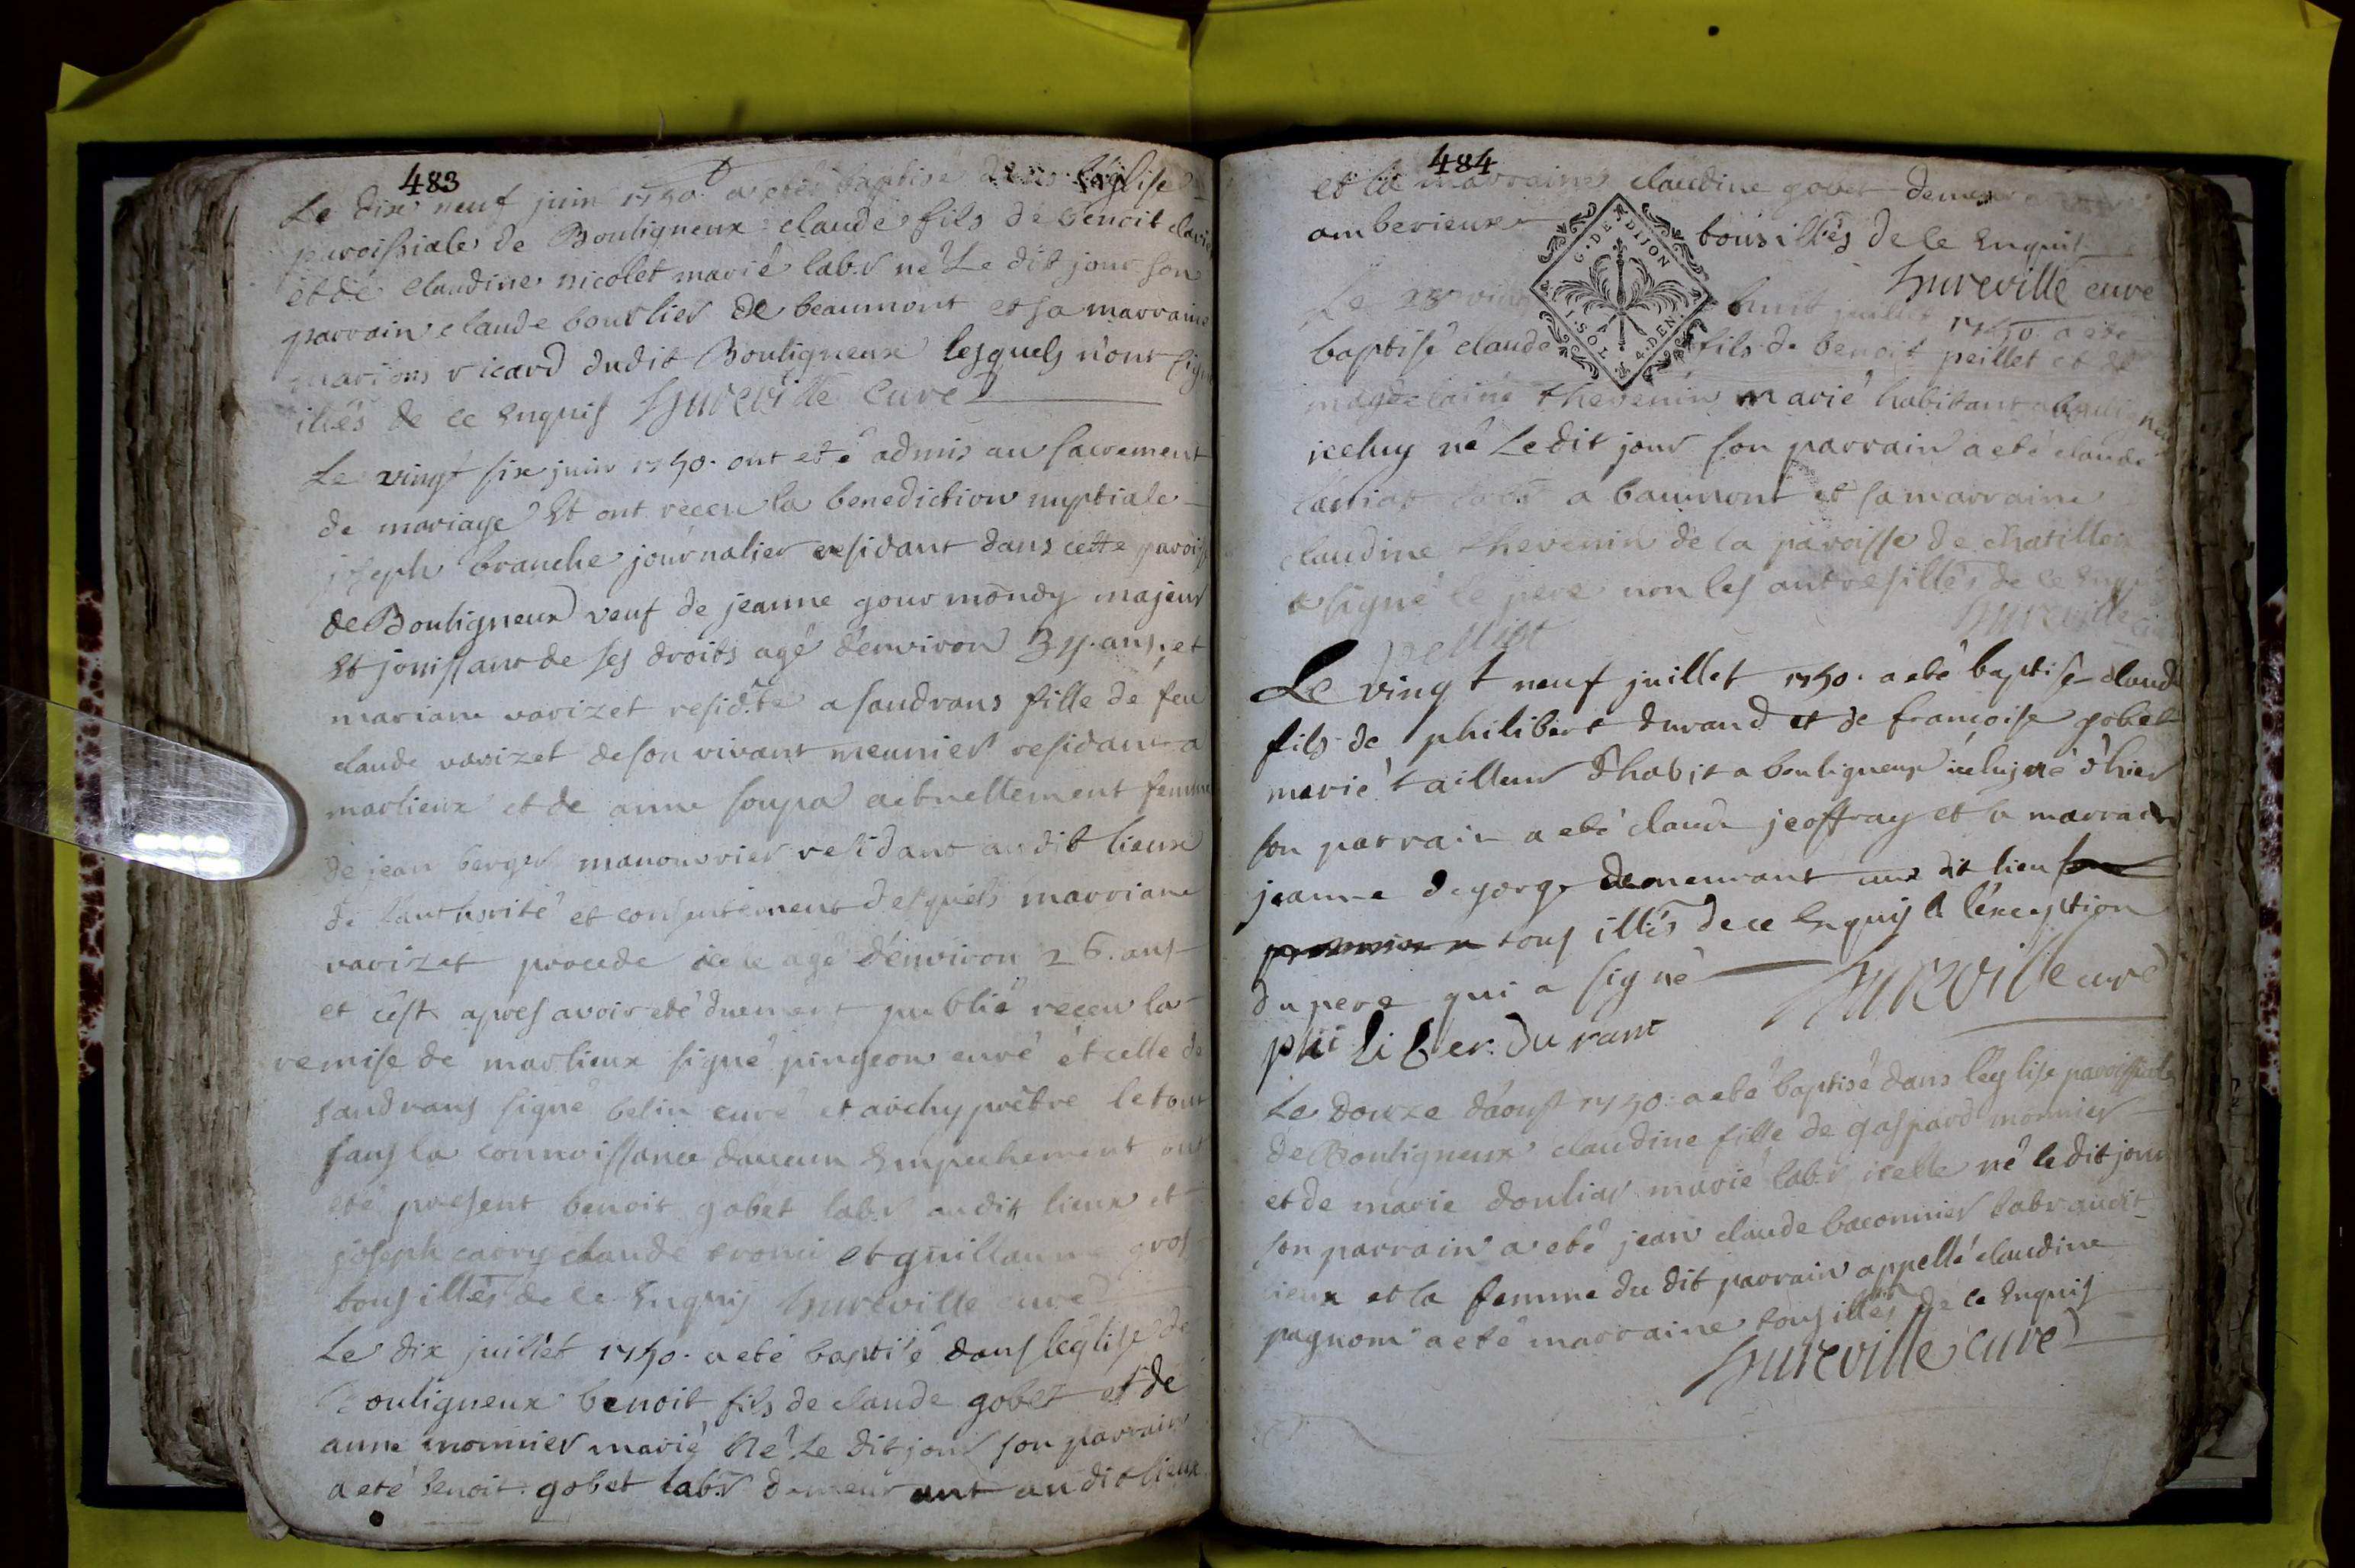 483
Le dix neuf juin 1750. a eté baptisé dans l'église
paroissiale de Bouligneux claude fils de benoit
et de claudine nicolet marié lab.r né Le dit jour son
parrain claude bourlier de beaumont et sa marraine
marions ricard dudit Bouligneux lesquels n'ont signé
illés de ce Enquis hureville curé
Le vingt six juin 1750. ont eté admis au sacrement
de mariage Et ont receu la benediction nuptiale
joseph branche journalier residant dans cette paroisse
de Bouligneux veuf de jeanne gourmondy majeur
Et jouissant de ses droits agé d'environ ans, et
mariane varizet resid.te a sandrans fille de feu
claude varizet de son vivant meunier residant a
marlieux et de anne soupa actuellement femme
de jean berger manouvrier residant audit lieux
de l'authorité et consentement desquels marriane
varizet procede icele agé d'environ 26. ans
et c'est apres avoir eté duement publié receu la
remise de marlieux signé pingeon curé et celle de
sandrans signé belin curé et archyprêtre le tout
sans la connoissance d'aucun Empechement ont
eté present benoit gobet lab.r audit lieux et
joseph carry claude et guillaume gros
tous illés de ce Enquis hureville curé
Le dix juillet 1750. a eté baptisé dans l'église de
Bouligneux benoit fils de claude gobet et de
anne monnier marié Né Le dit jour son parrain
a eté benoit gobet lab.r demeurant audit lieux
484
et la marraine claudine gobet
amberieux tous illés de ce Enquis
G·DE·DIJON
1·SOL 4·DEN·
hureville curé
Le 28 huit juillet 1750. a eté
baptisé claude fils de benoit peillet et de
magdelaine thevenin marié habitant
iceluy né Le dit jour son parrain a eté claude
a baumont et sa marraine
claudine thevenin de la paroisse de chatillon
a signé le pere non les autres illés de ce Enquis
hureville
Le vingt neuf juillet 1750. a eté baptisé claude
fils de philibert durand et de françoise gobet
marié tailleur d'habit a bouligneux iceluy né d'hier
son parrain a eté claude jeoffray et la marraine
jeanne degorge demeurant aux dit lieu
tous illés de ce Enquis a l'exception
du pere qui a signé hureville curé
phi li ber. du rant
Le douze d'aoust 1750. a eté baptisé dans l'eglise paroissiale
de Bouligneux claudine fille de gaspard monnier
et de marie doulias marié lab.r icelle né le dit jour
son parrain a eté jean claude baconnier labr audit
lieux et la femme du dit parrain appellé claudine
pagnon a eté marraine tous illés de ce Enquis
hureville curé